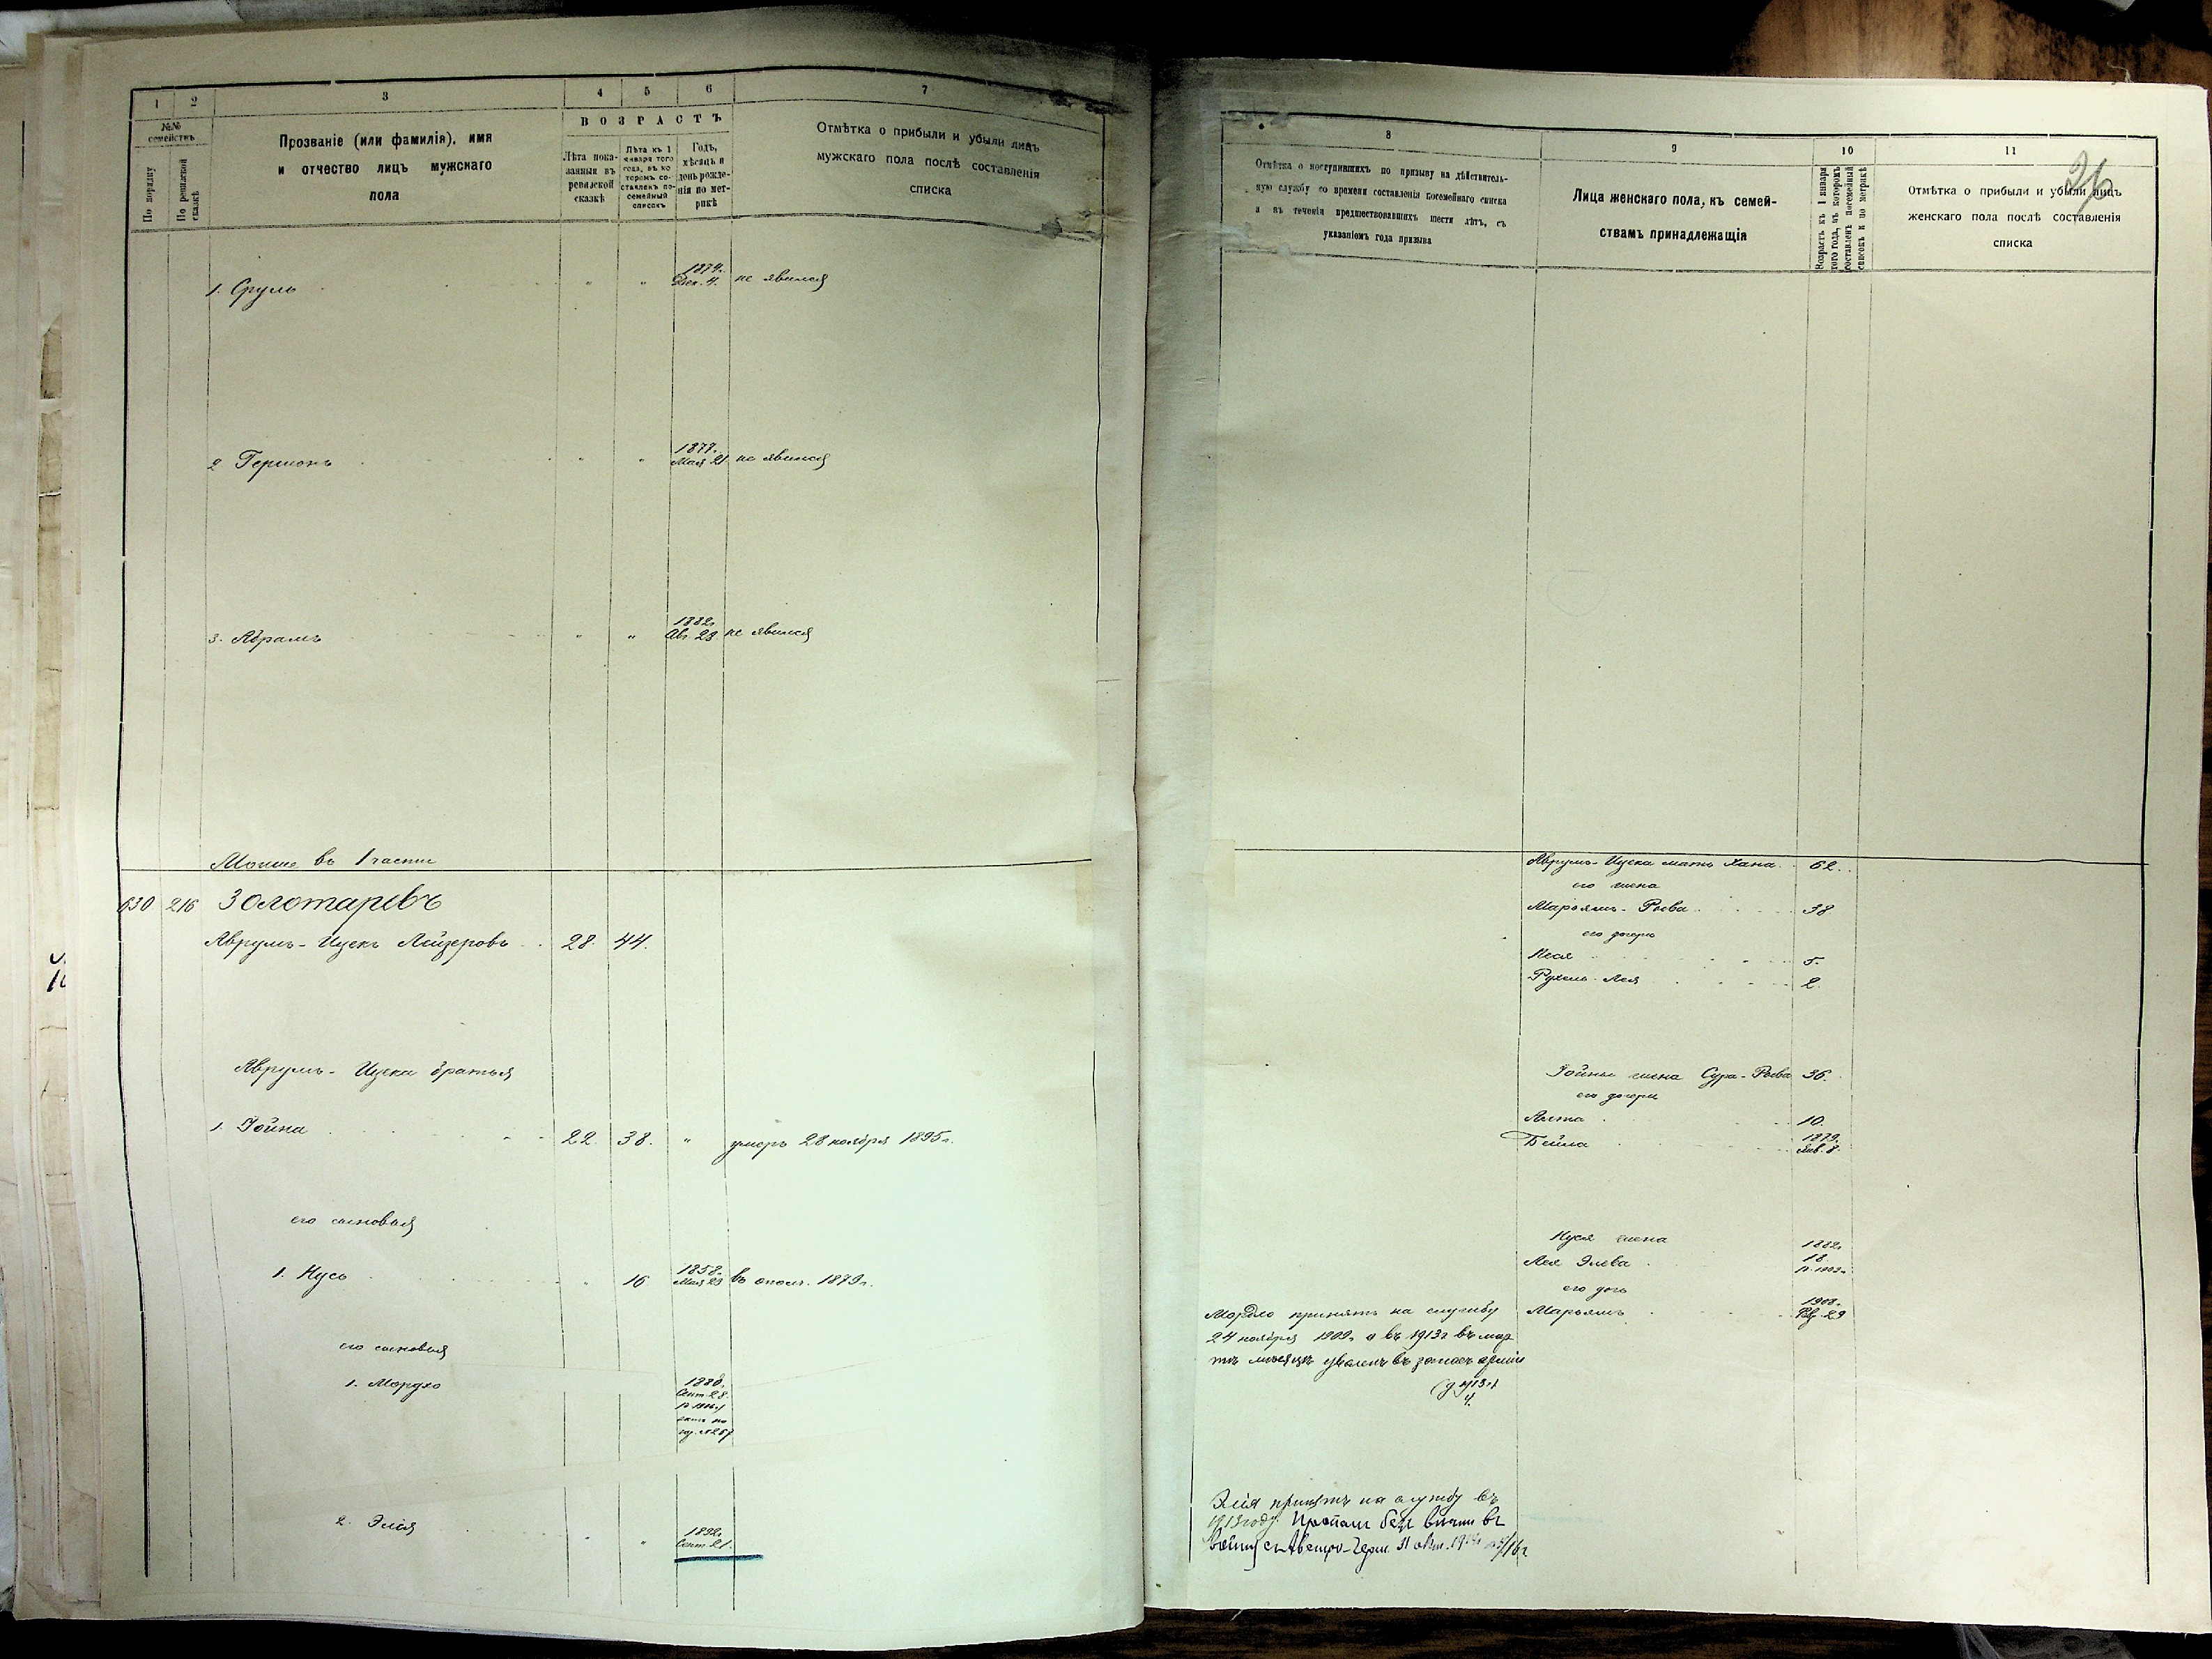 1 2 3 4 5 6 7
№№ семействъ
По порядку
По ревизской сказкѣ
Прозваніе (или фамилія), имя
и отчество лицъ мужскаго
пола
ВОЗРАСТЪ
Лѣта пока-
занныя въ
ревизской
сказкѣ
Лѣта къ 1
января того
года, въ ко-
торомъ со-
ставленъ по-
семейный
списокъ
Годъ,
мѣсяцъ и
день рожде-
нія по мет-
рикѣ
Отмѣтка о прибыли и убыли лицъ
мужскаго пола послѣ составленія
списка
1. Сруль " " 1874 г. Дек. 4. не явился
2 Гершонъ " " 1877 г. Мая 21 не явился
3. Абрамъ " " 1882 г. Авг. 23 не явился
Мошне въ 1 части
630 216 Золотаревъ
Аврумъ-Ицекъ Лейзеровъ 28. 44.
Аврумъ-Ицека братья
1. Гойна 22. 38. " умеръ 28 ноября 1895 г.
его сыновья
1. Нусь " 16 1858 г. Мая 23 въ ополч. 1879 г.
его сыновья
1. Мордхо 1880 г.
Сент. 28.
2. Элія " " 1892 г.
Сент. 21.
8 9 10 11
26
Отмѣтка о поступившихъ по призыву на дѣйствитель-
ную службу со времени составленія посемейнаго списка
и въ теченіи предшествовавшихъ шести лѣтъ, съ
указаніемъ года призыва
Лица женскаго пола, къ семей-
ствамъ принадлежащія
Возрастъ къ 1 января
того года, въ которомъ
составленъ посемейный
списокъ и по метрикѣ
Отмѣтка о прибыли и убыли лицъ
женскаго пола послѣ составленія
списка
Аврумъ-Ицека мать Хана 62.
его жена
Марьямъ-Рыва 38
его дочери
Неся 5.
Рухель-Лея 2.
Гойны жена Сура-Рыва 36.
его дочери
Ялта 10.
Бейла 1879. Янв. 8.
Нуся жена
Лея Элева 1882 г.
18
его дочь
Марьямъ 1908 г. 29
Мордхо принятъ на службу
24 ноября 1909 г. а въ 1913 г въ мар
тѣ мѣсяцѣ уволенъ въ запасъ арміи
Элія принятъ на службу въ
1913 году. Пропалъ безъ вѣсти въ
войну съ Австро-Герм. 31 окт. 1914